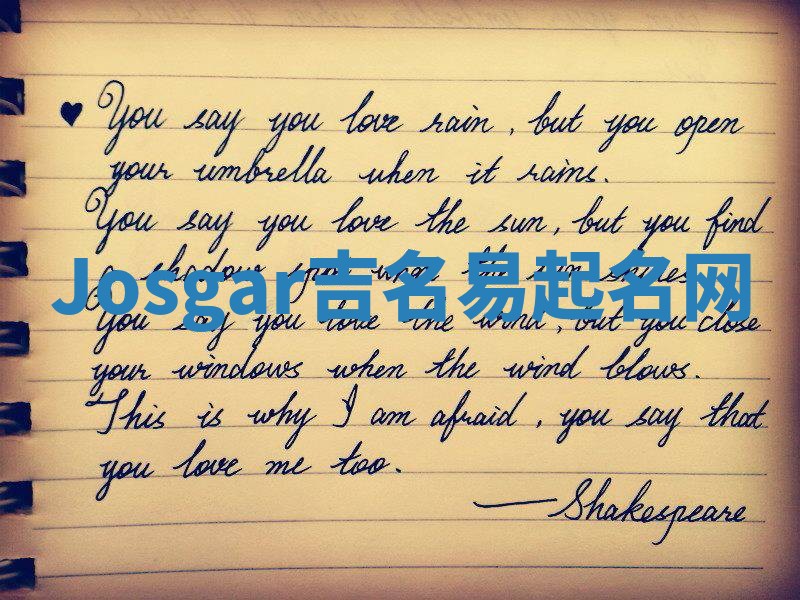 ♥ You say you love rain, but you open
your umbrella when it rains.
You say you love the sun, but you find
a shadow spot when the sun shines.
Josgar吉名易起名网
You say you love the wind, but you close
your windows when the wind blows.
This is why I am afraid, you say that
you love me too.
—Shakespeare